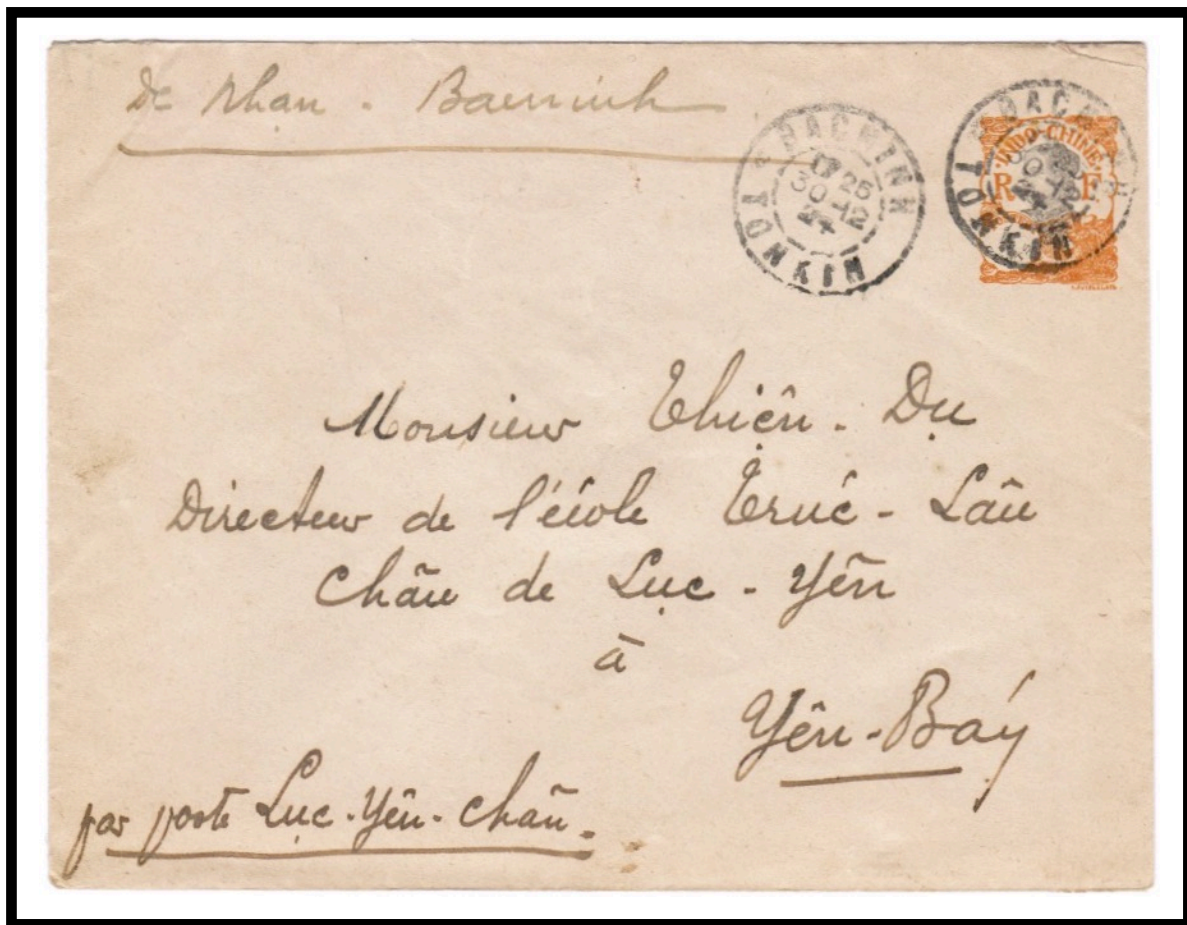 De Nhạn - Bacninh
BACNINH
17 25
30 - 12
24
TONKIN
BACNINH
TONKIN
INDO-CHINE
R F
Monsieur Thiện - Dụ
Directeur de l'école Trúc - Lâu
Châu de Lục - Yên
à
Yên - Báy
par poste Lục - Yên - Châu -